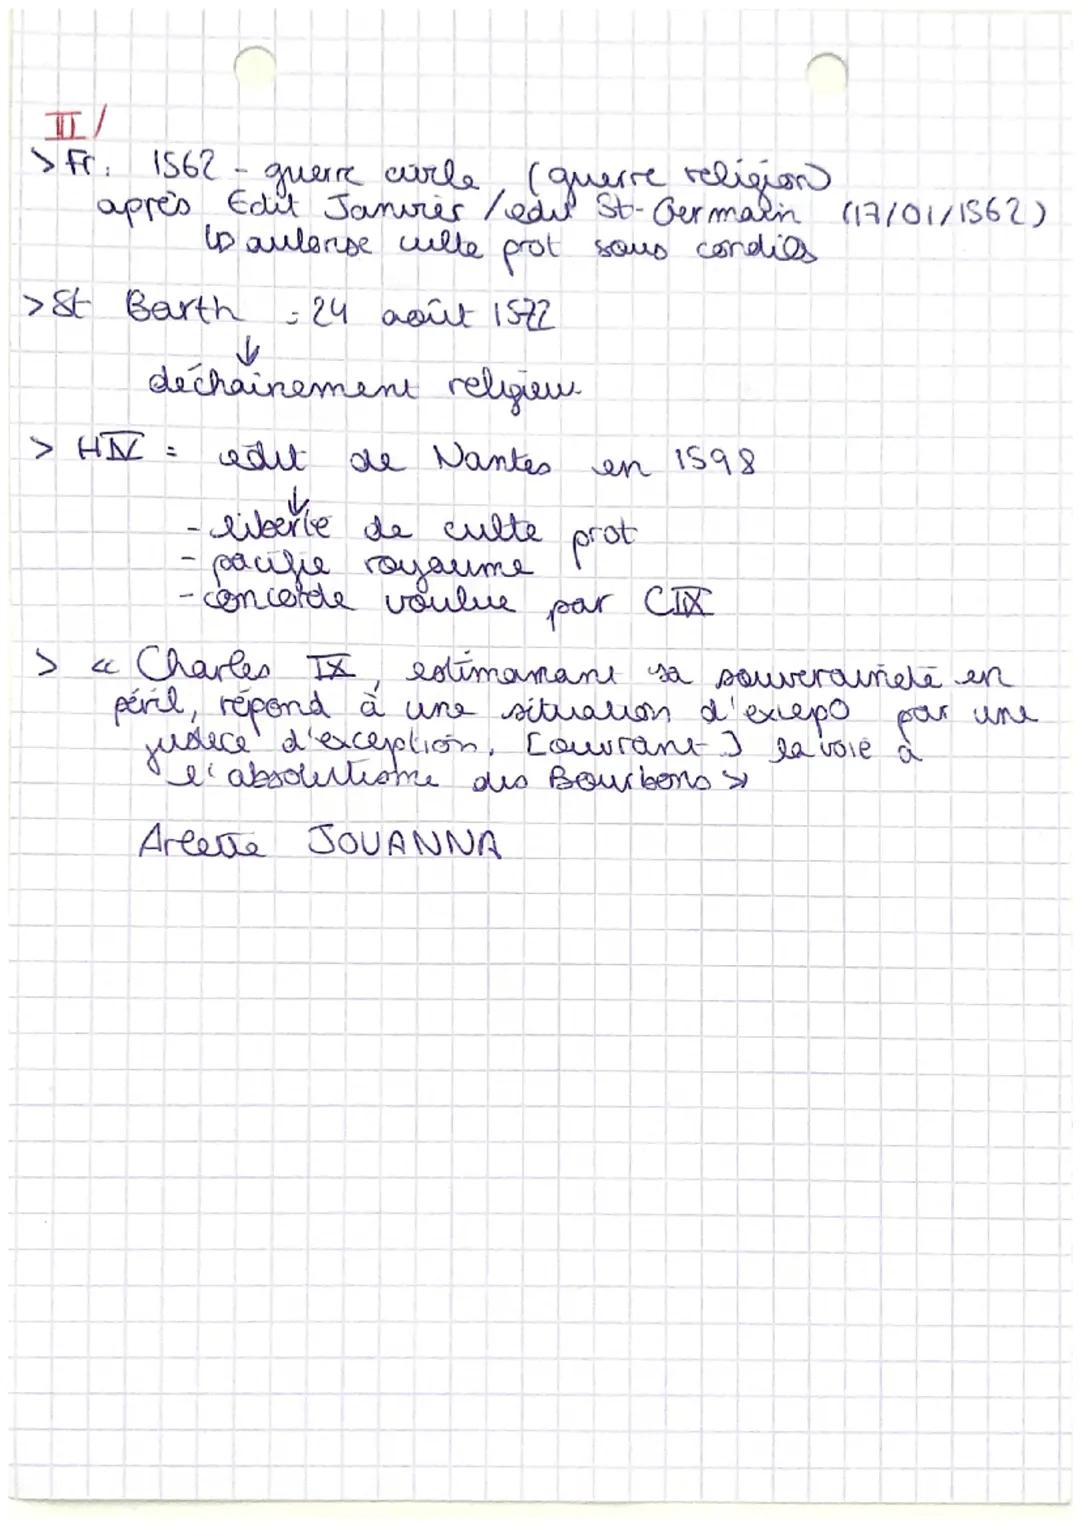 II/
> Fr. 1562 - guerre civile (guerre religion)
après Edit Janvier / edit St-Germain (17/01/1562)
↳ autorise culte prot sous condi°s
> St Barth = 24 août 1572
↓
déchaînement religieux
> HIV = edit de Nantes en 1598
↓
- liberté de culte prot
- pacifie royaume
- concorde voulue par CIX
> « Charles IX, estimamant sa souveraineté en
péril, répond à une situation d'excep° par une
justice d'exception, [ouvrant] la voie à
l'absolutisme des Bourbons »
Arlette JOUANNA